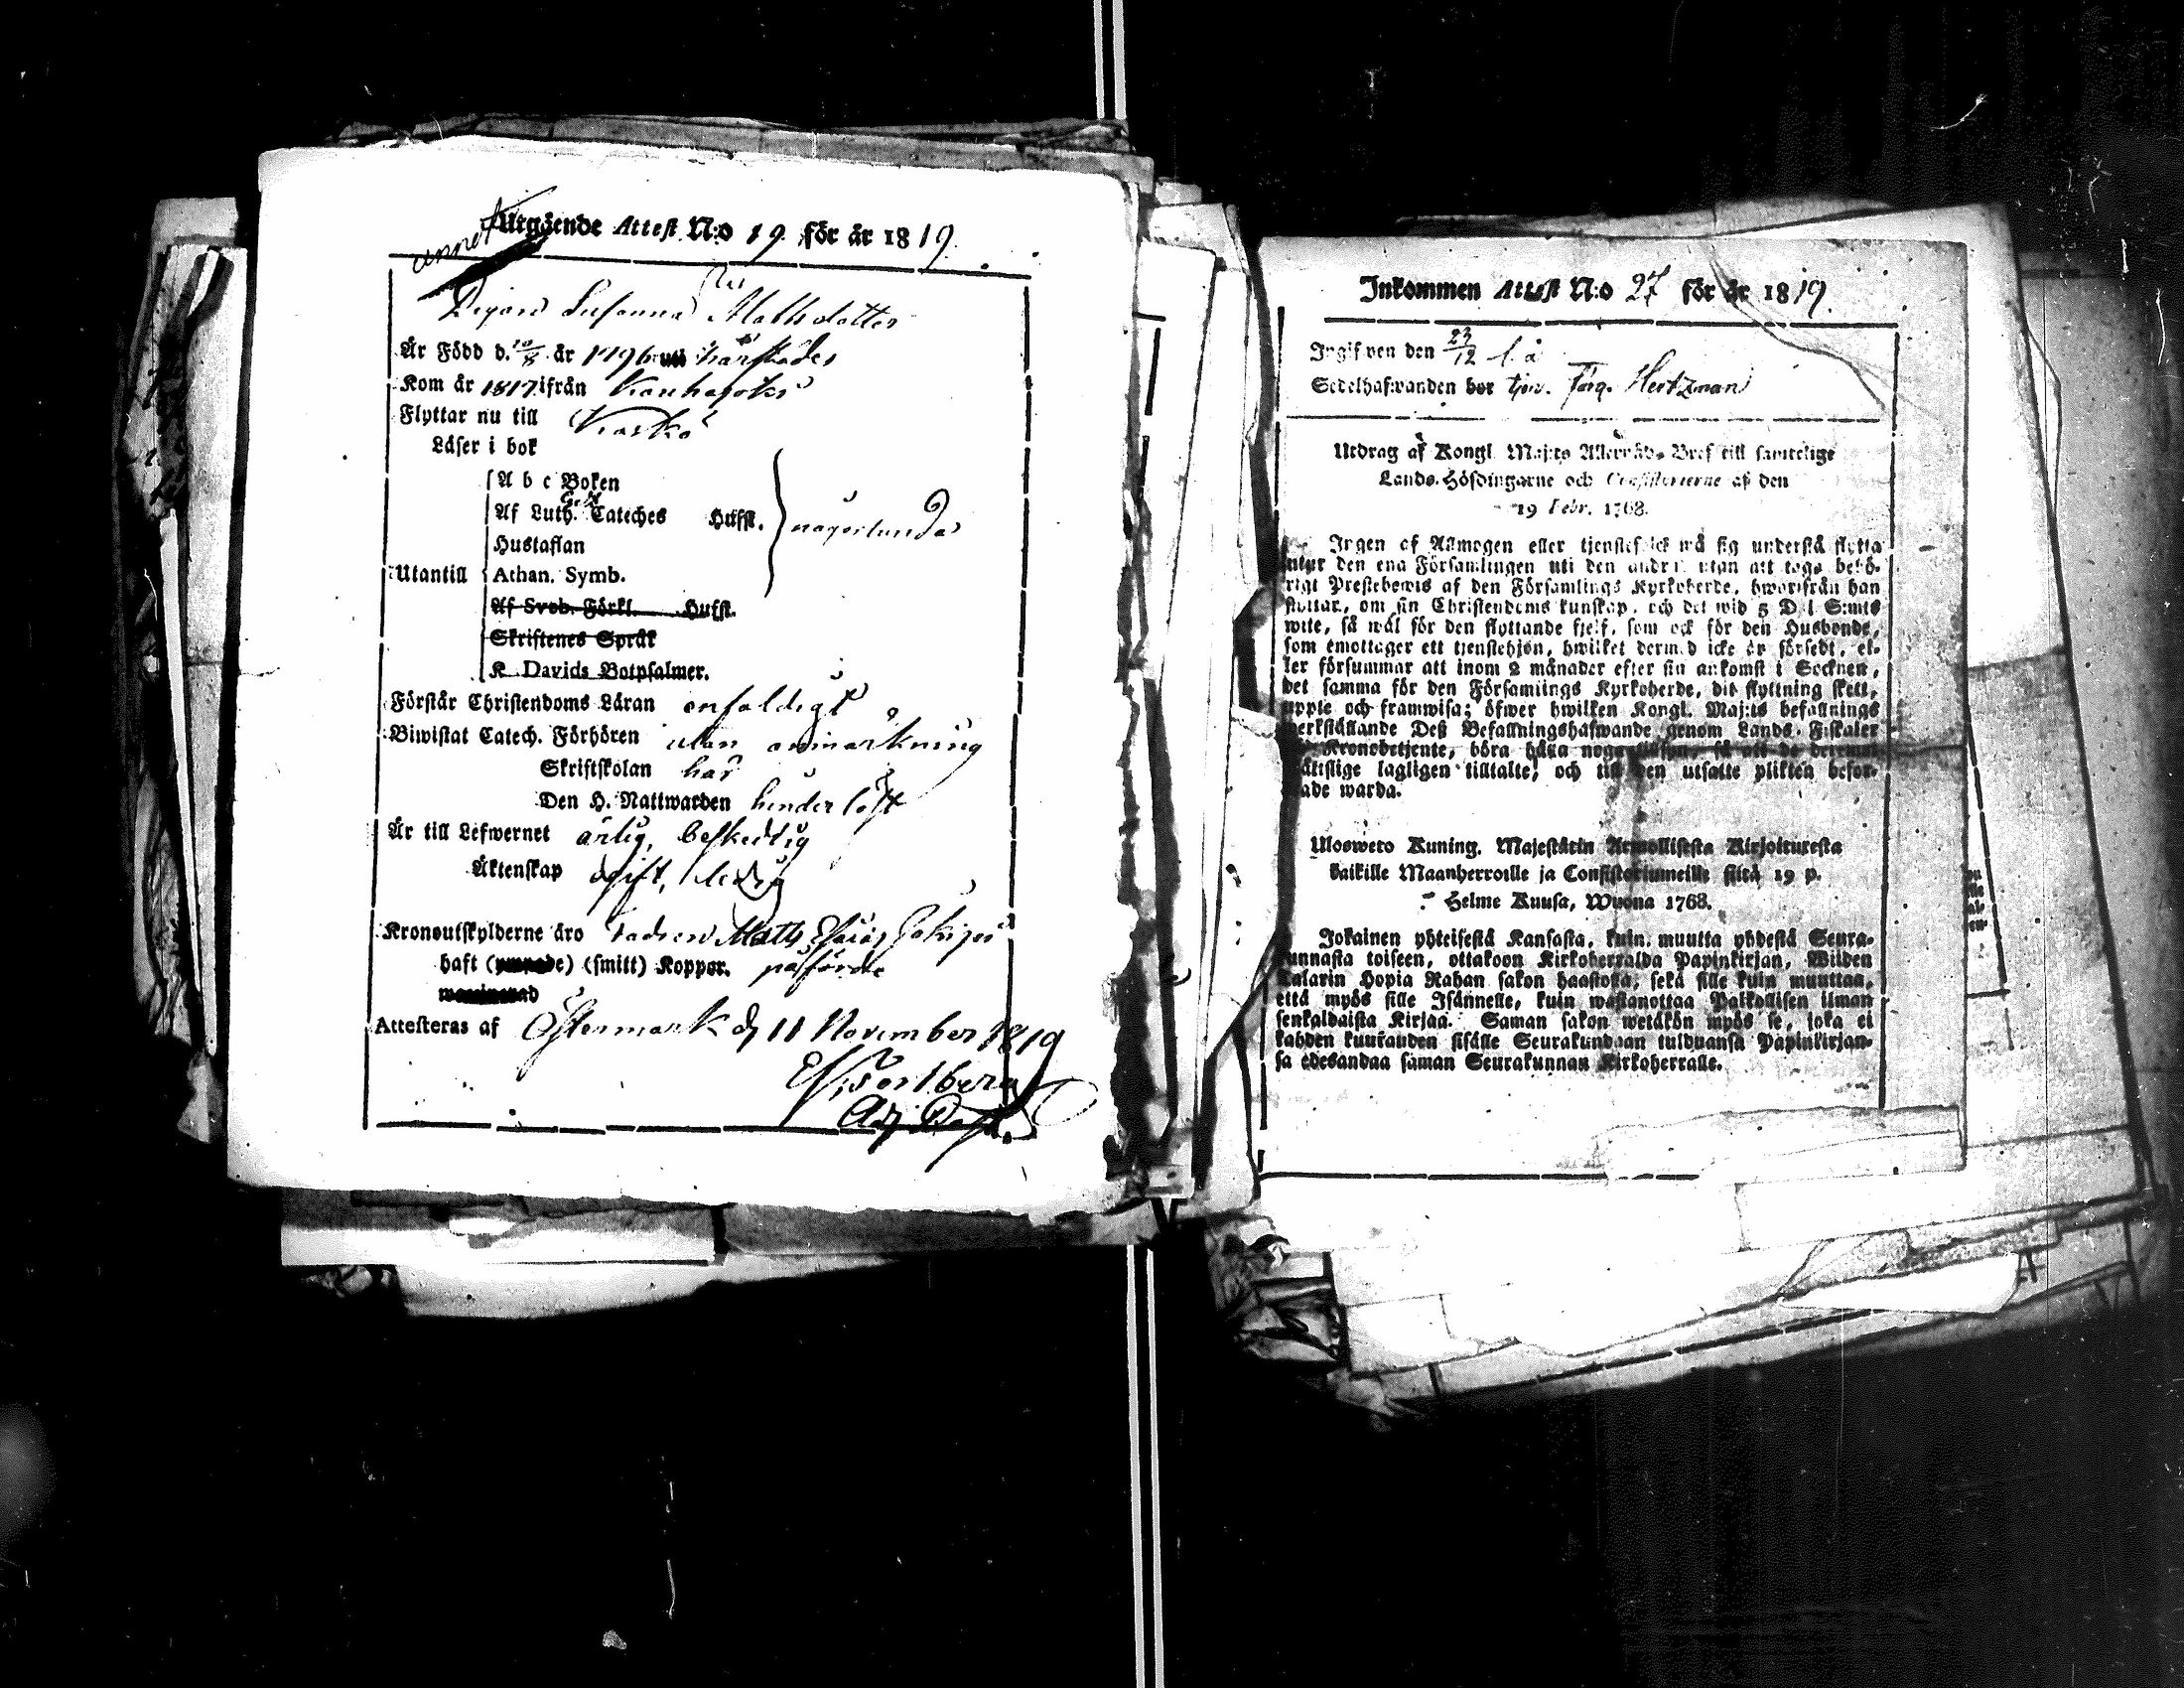 Utgående Attest N:o 19. för år 1819.
Pigan Lis Susanna Mattsdotter
Är Född d. 10/8 år 1796 uti härstädes
Kom år 1817 ifrån Kauhajoki
Flyttar nu till Kaskö
Läser i bok
A b c Boken
Af Luth. Cateches Hufst.
Hustaflan
Utantill Athan. Symb. någorlunda
Af Sveb. Förkl. Hufst.
Skriftenes Språk
K. Davids Botpsalmer.
Förstår Christendoms Läran enfaldigt
Biwistat Catech. Förhören utan anmärkning
Skriftskolan har
Den H. Nattwarden hinderlöst
Är till Lefwernet ärlig, beskedlig
Äktenskap ogift, ledig
Kronoutskylderne äro Fadren Matts Esaias
haft (smitt) Koppor. påförde
Attesteras af Östermark d. 11 November 1819
Adj.
Inkommen Attest N:o 27 för år 1819.
Ingifven den 23/12 l. å
Sedelhafwanden bor tjen. Färg. Hertzman
Utdrag af Kongl. Maj:ts Allernåd. Bref till samtelige
Lands-Höfdingarne och Consistorierne af den
19 Febr. 1768.
Ingen af Allmogen eller tjenstefolck må sig understå flytta
utur den ena Församlingen uti den andra utan att taga behö-
rigt Prestebewis af den Församlings Kyrkoherde, hworifrån han
flyttar, om sin Christendoms kunskap, och det wid 5 Dal. S:mts
wite, så wäl för den flyttande sjelf, som ock för den Husbonde,
som emottager ett tjenstehjon, hwilket dermed icke är försedt, el-
ler försummar att inom 2 månader efter sin ankomst i Socknen,
det samma för den Församlings Kyrkoherde, dit flyttning skett,
upple och framwisa; öfwer hwilken Kongl. Maj:ts befallnings
werkställande Deß Befallningshafwande genom Lands-Fiskaler
Kronobetjente, böra hålla noga tillsyn, så att de deremot
lagligen tilltalte, och till den utsatte plikten befor-
ade warda.
Uloswetto Kuning. Majestätin Armollisesta Kirjoituxesta
kaikille Maanherroille ja Consistoriumeille siitä 19 p.
Helme Kuusa, Wuona 1768.
Jokainen yhteisestä Kansasta, kuin muutta yhdestä Seura-
kunnasta toiseen, ottakoon Kirkoherralda Papinkirjan, Wiiden
Talarin Hopia Rahan sakon haastolla, sekä sille kuin muuttaa,
että myös sille Isännelle, kuin wastanottaa Palkollisen ilman
senkaldaista Kirjaa. Saman sakon wetäkön myös se, joka ei
kahden kuukauden sisälle Seurakundaan tulduansa Papinkirjan-
sa edesandaa saman Seurakunnan Kirkoherralle.